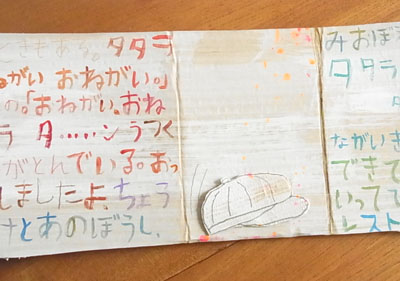 ときもある。タタラ
ねがい おねがい。」
の。「おねがい、おね
ラ タ……ン うつく
がとんでいる。おっ
しましたよ、ちょう
けとあのぼうし、
みおぼ
タタラ
タ
ながいき
できて
いって
レスト